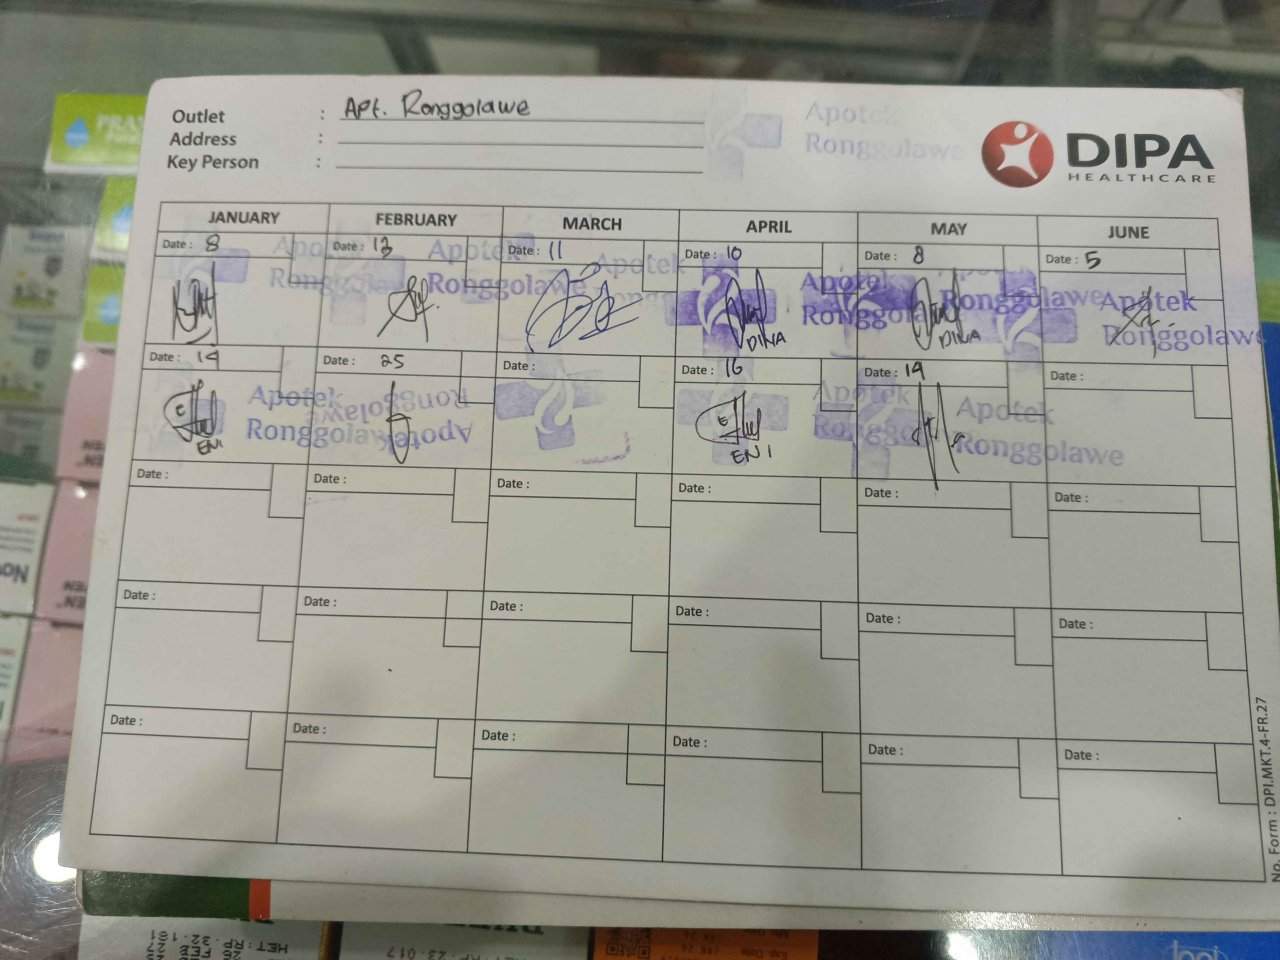 Outlet : Apt. Ronggolawe
Address :
Key Person :
Apotek
Ronggolawe
DIPA
HEALTHCARE
JANUARY FEBRUARY MARCH APRIL MAY JUNE
Date : 8 Date : 13 Date : 11 Date : 10 Date : 8 Date : 5
Apotek Apotek Apotek Apotek Apotek
Ronggolawe Ronggolawe Ronggolawe Ronggolawe Ronggolawe
DINA DINA
Date : 14 Date : 25 Date : Date : 16 Date : 19 Date :
Apotek Apotek Apotek Apotek
Ronggolawe Ronggolawe Ronggolawe Ronggolawe
ENI ENI
Date : Date : Date : Date : Date : Date :
Date : Date : Date : Date : Date : Date :
Date : Date : Date : Date : Date : Date :
No. Form : DPI.MKT.4-FR.27